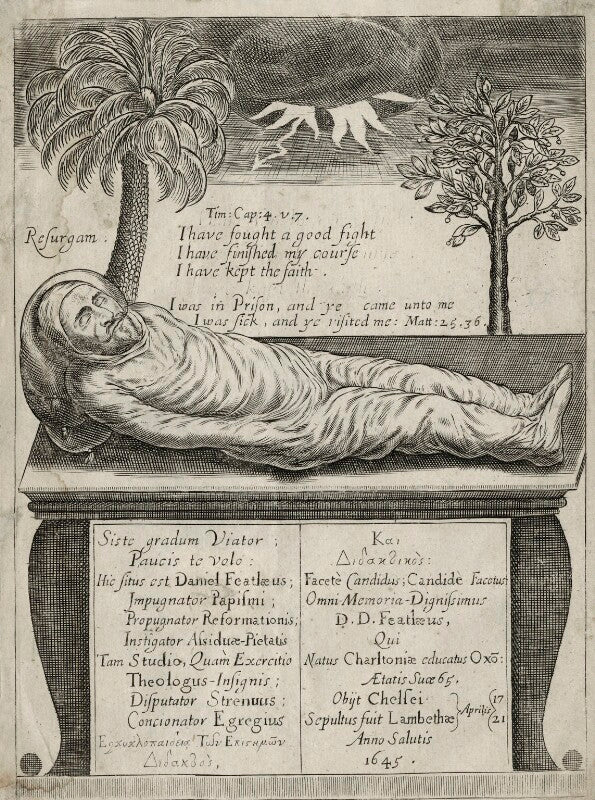 Tim: Cap: 4. v. 7.
Resurgam:
I have fought a good fight
I have finished my course
I have kept the faith.
I was in Prison, and ye came unto me
I was sick, and ye visited me: Matt: 25. 36.
Siste gradum Viator;
Paucis te volo:
Hic situs est Daniel Featlæus;
Impugnator Papismi;
Propugnator Reformationis,
Instigator Assiduæ-Pietatis
Tam Studio, Quàm Exercitio
Theologus-Insignis;
Disputator Strenuus;
Concionator Egregius
Των
Και
Facetè Candidus; Candidè Facetus
Omni-Memoria-Dignissimus
D. D. Featlæus,
Qui
Natus Charltoniæ educatus Oxõ:
Ætatis Suæ 65.
Obijt Chelsei
Sepultus fuit Lambethæ
Aprilis
17
21
Anno Salutis
1645.